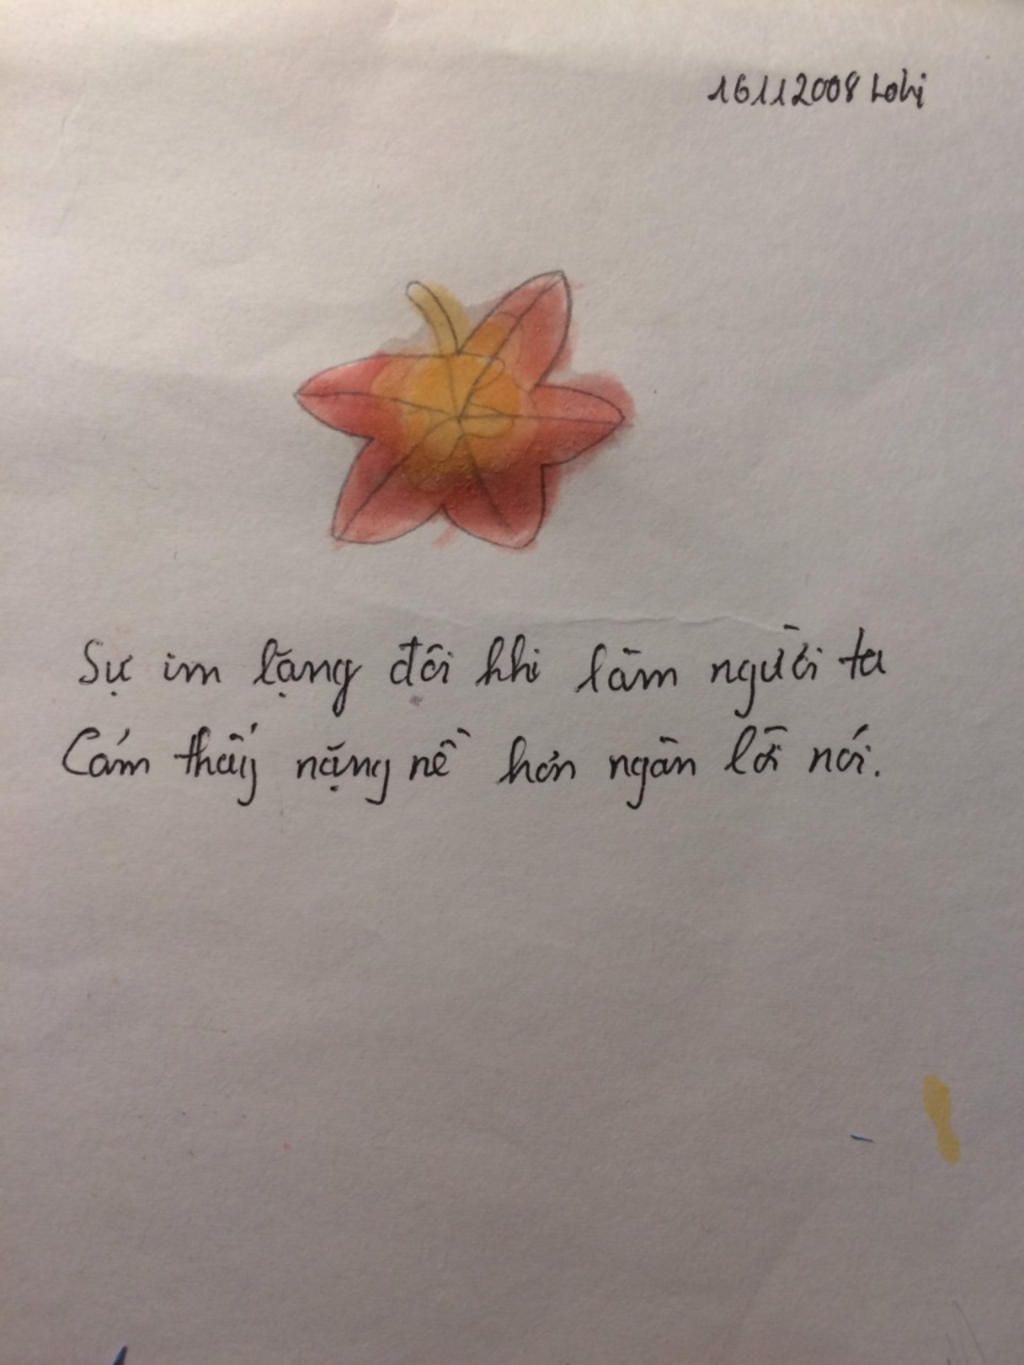 16112008 Lohi
Sự im lặng đôi khi làm người ta
Cảm thấy nặng nề hơn ngàn lời nói.